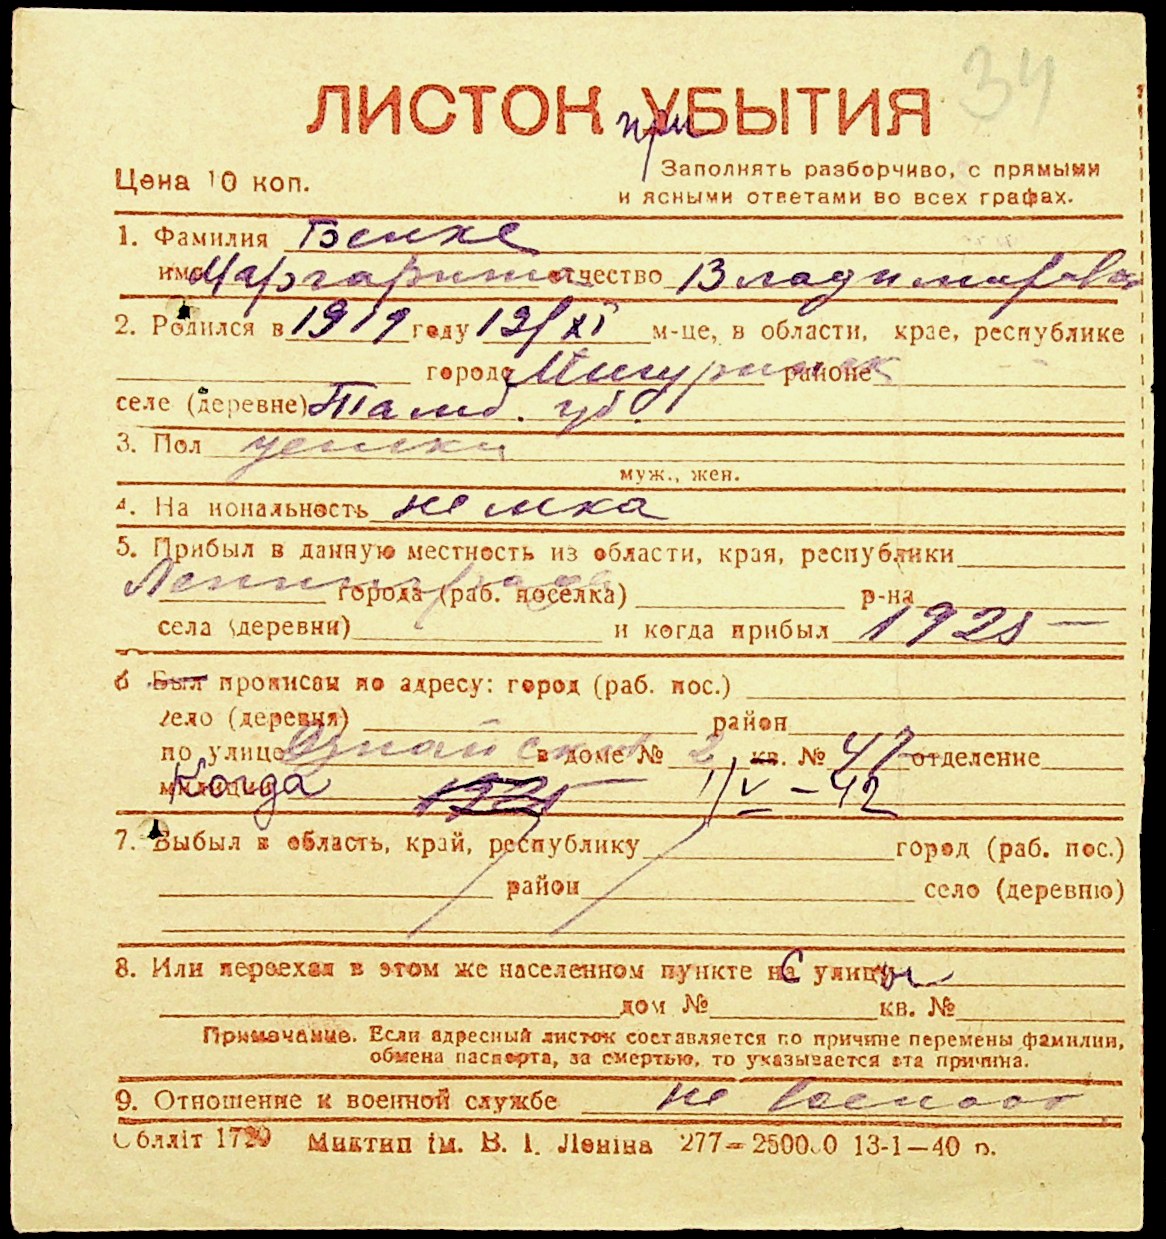 34
ЛИСТОК УБЫТИЯ
при
Цена 10 коп.
Заполнять разборчиво, с прямыми
и ясными ответами во всех графах.
1. Фамилия Бенке
имя Маргарита отчество Владимировна
2. Родился в 1919 году 12/XI м-це, в области, крае, республике
городе районе
селе (деревне) Тамб. губ.
3. Пол
муж., жен.
4. Национальность немка
5. Прибыл в данную местность из области, края, республики
Ленинграда города (раб. поселка) р-на
села (деревни) и когда прибыл 1925
6 Был прописан по адресу: город (раб. пос.)
село (деревня) район
по улице в доме № 2 кв. № 47 отделение
милиции Когда 1925 1/V – 42
7. Выбыл в область, край, республику город (раб. пос.)
район село (деревню)
8. Или переехал в этом же населенном пункте на С улицы
дом № кв. №
Примечание. Если адресный листок составляется по причине перемены фамилии,
обмена паспорта, за смертью, то указывается эта причина.
9. Отношение к военной службе не
Облліт 1729 Миктип ім. В. І. Леніна 277—250000 13-1—40 р.